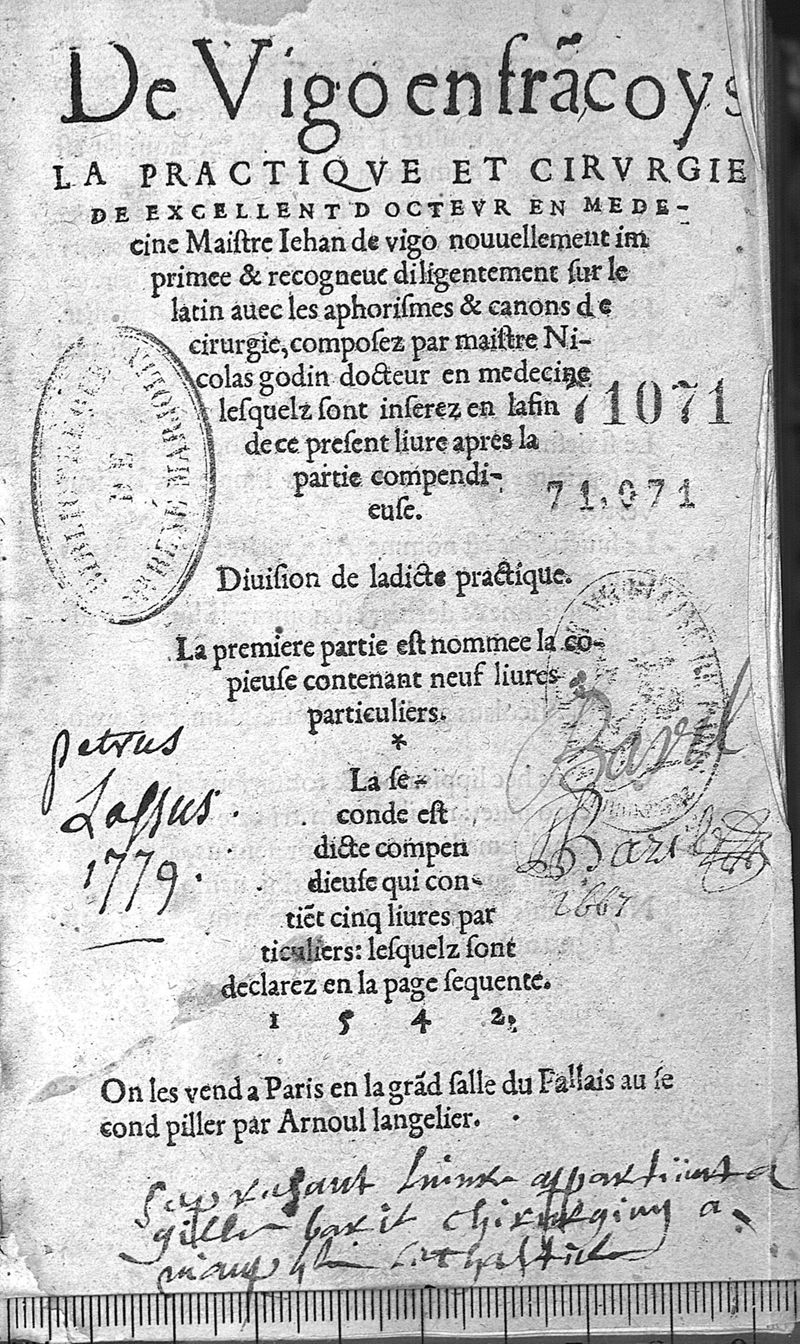 De Vigo en frãcoys
LA PRACTIQVE ET CIRVRGIE
DE EXCELLENT DOCTEVR EN MEDE-
cine Maiſtre Iehan de vigo nouuellement im
primee & recogneue diligentement ſur le
latin auec les aphoriſmes & canons de
cirurgie, compoſez par maiſtre Ni-
colas godin docteur en medecine
leſquelz ſont inſerez en lafin
de ce preſent liure apres la
partie compendi-
euſe.
71071
71.071
BIBLIOTHEQUE
DE
Diuiſion de ladicte practique.
La premiere partie eſt nommee la co-
pieuſe contenant neuf liures
particuliers.
*
La ſe-
conde eſt
dicte compen
dieuſe qui con-
tiẽt cinq liures par
ticuliers: leſquelz ſont
declarez en la page ſequente.
1 5 4 2.
petrus
Laſſus.
1779.
Baril
Baril
1667
On les vend a Paris en la grãd ſalle du Pallais au ſe
cond piller par Arnoul langelier.
appartient a
gilles baril chirurgien a